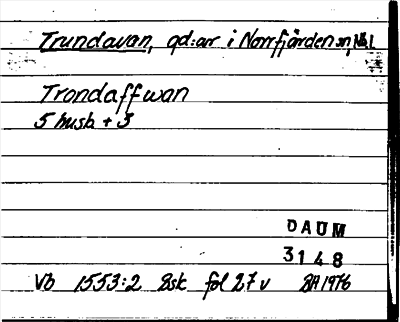 Trundavan, gd:ar i Norrfjärden sn, Nbl
Trondaffwan
5 husb. + 3
DAUM
3148
Vb 1553:2 Bsk fol 27 v BA 1976